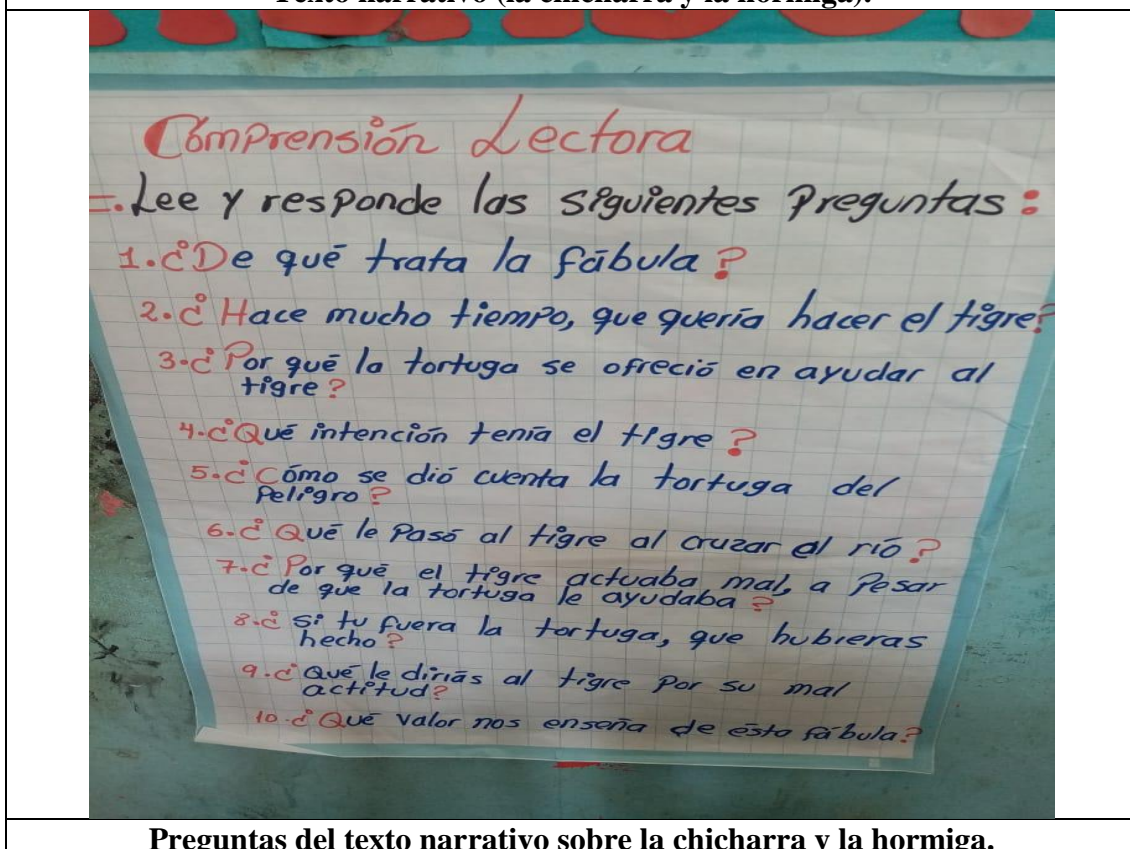 Texto narrativo (la chicharra y la hormiga).
Comprensión Lectora
=. Lee y responde las siguientes Preguntas:
1. ¿De qué trata la fábula?
2. ¿Hace mucho tiempo, que quería hacer el tigre?
3. ¿Por qué la tortuga se ofreció en ayudar al
tigre?
4. ¿Qué intención tenía el tigre?
5. ¿Cómo se dió cuenta la tortuga del
Peligro?
6. ¿Qué le Pasó al tigre al cruzar el río?
7. ¿Por qué el tigre actuaba mal, a Pesar
de que la tortuga le ayudaba?
8. ¿si tu fuera la tortuga, que hubieras
hecho?
9. ¿Qué le dirías al tigre Por su mal
actitud?
10. ¿Qué valor nos enseña de ésta fábula?
Preguntas del texto narrativo sobre la chicharra y la hormiga.